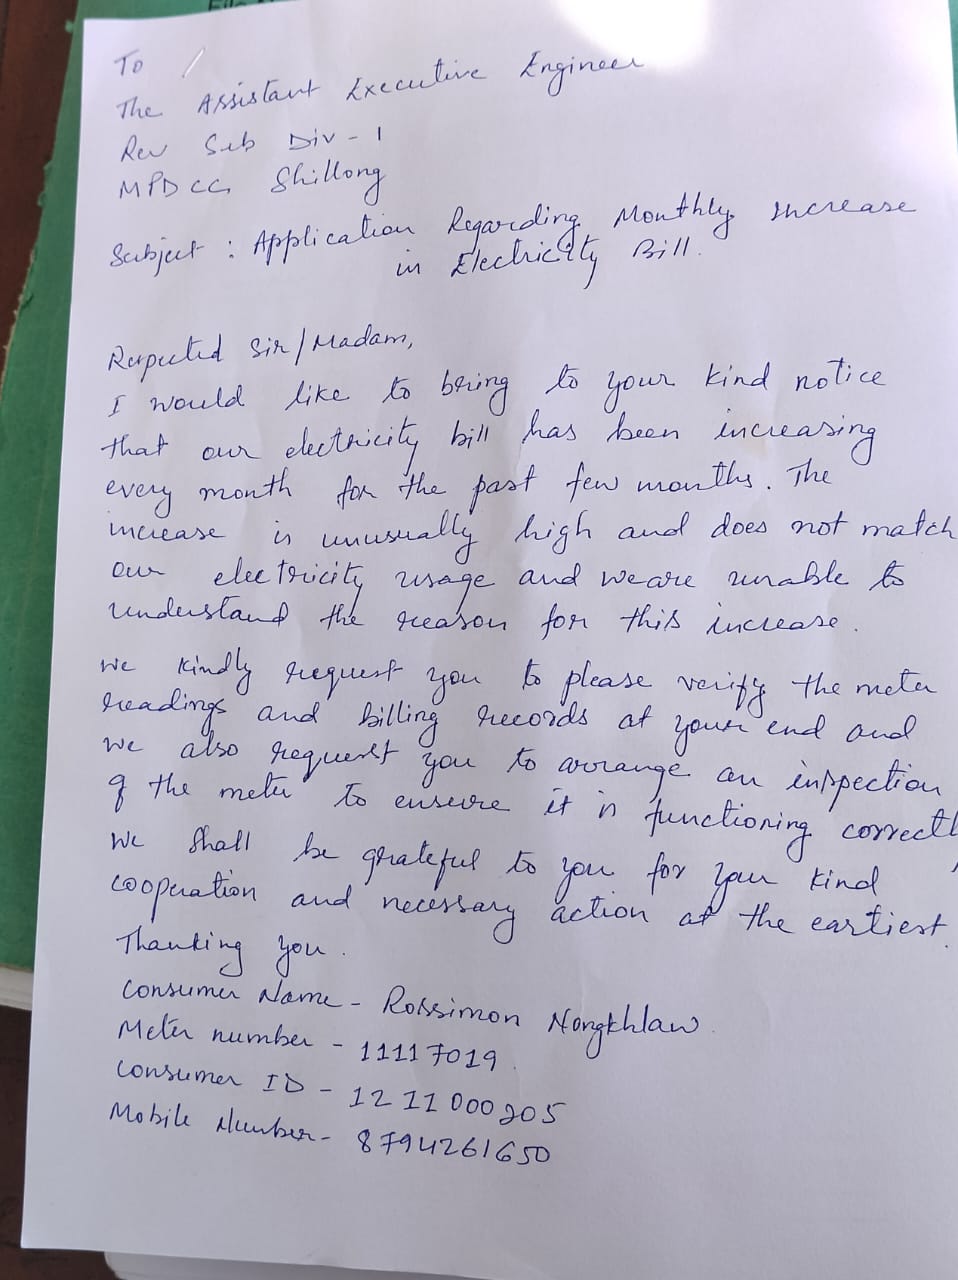 To
The Assistant Executive Engineer
Rev Sub Div - 1
MPDCL Shillong
Subject : Application Regarding Monthly increase
in Electricity Bill.
Respected Sir/Madam,
I would like to bring to your kind notice
that our electricity bill has been increasing
every month for the past few months. The
increase is unusually high and does not match
our electricity usage and we are unable to
understand the reason for this increase.
We kindly request you to please verify the meter
readings and billing records at your end and
we also request you to arrange an inspection
of the meter to ensure it is functioning correctl
We shall be grateful to you for your kind
cooperation and necessary action at the earliest.
Thanking you.
Consumer Name - Rossimon Nongkhlaw
Meter number - 11117019
Consumer ID - 1211000205
Mobile Number - 8794261650